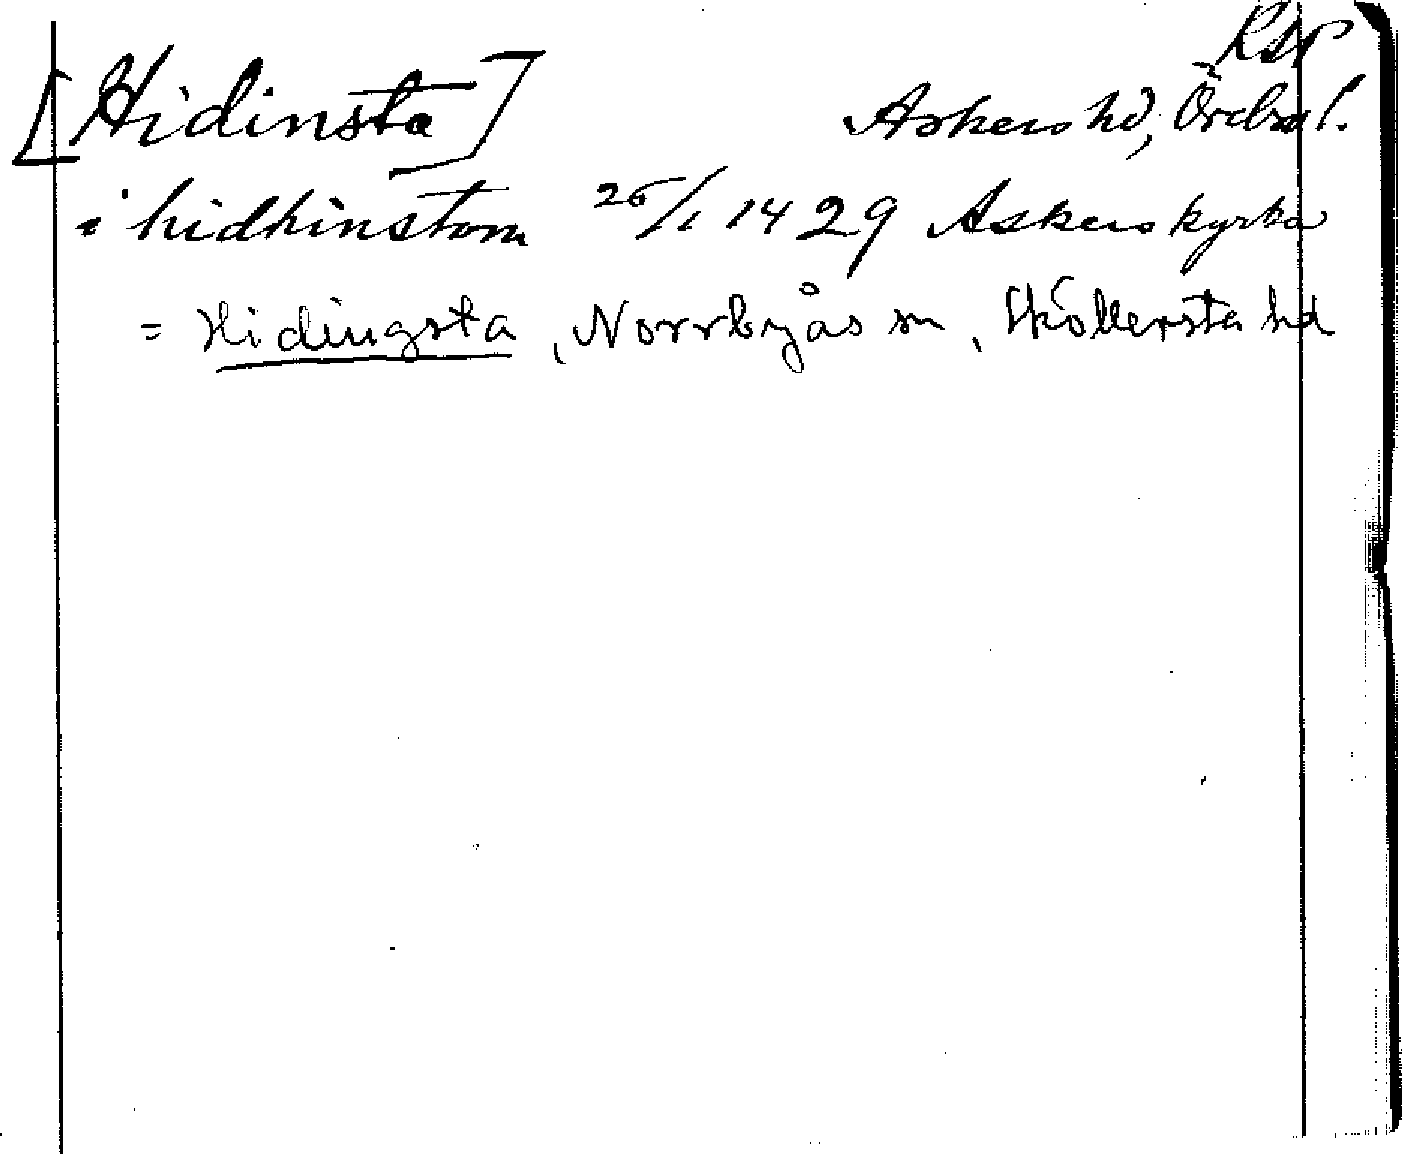 [Hidinsta] Askers hd, Örebro l.
i hidhinstom 26/1 1429 Askers kyrka
= Hidingsta, Norrbyås sn, Sköllersta hd